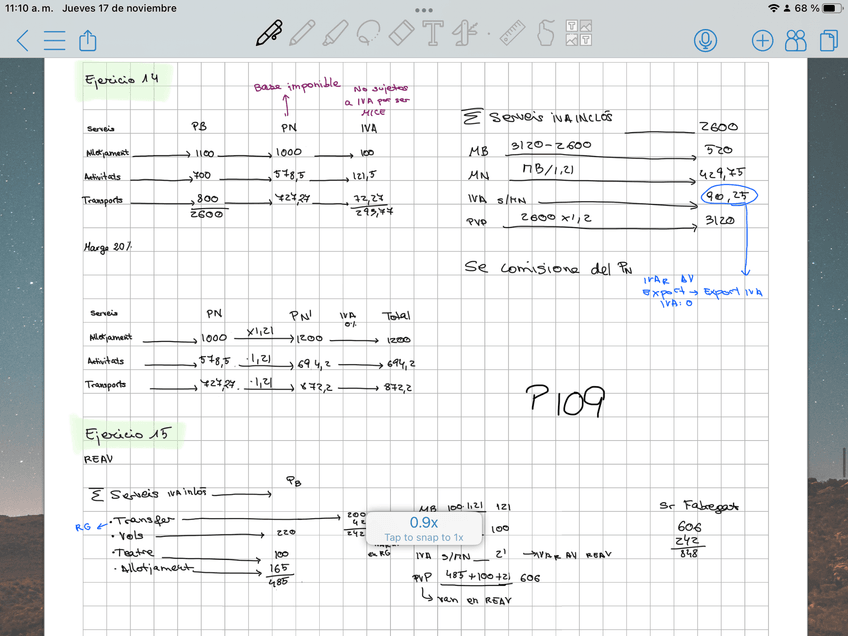 11:10 a. m. Jueves 17 de noviembre
68 %
Ejercicio 14
Base imponible
No sujetos
a IVA por ser
MICE
Serveis PB PN IVA
Allotjament 1100 1000 100
Activitats 700 578,5 121,5
Transports 800 727,27 72,27
2600 293,77
Marge 20%
Σ Serveis IVA INCLÓS 2600
MB 3120-2600 520
MN MB/1,21 429,75
IVA S/MN 90,25
PVP 2600 x1,2 3120
Se comisiona del PN
IVAR AV
Export → Export IVA
IVA: 0
Serveis PN PN' IVA Total
0%
Allotjament 1000 x1,21 1200 1200
Activitats 578,5 ·1,21 694,2 694,2
Transports 727,27 ·1,21 872,2 872,2
P109
Ejercicio 15
REAV
PB
Σ Serveis IVA inclòs
RG · Transfer 200
42
242
· Vols 220
· Teatre 100
· Allotjament 165
485
en RG
0.9x
Tap to snap to 1x
MB 100·1,21 121
100
IVA S/MN 21 → IVAR AV REAV
PVP 485+100+21 606
↳ van en REAV
Sr Fabegat
606
242
848